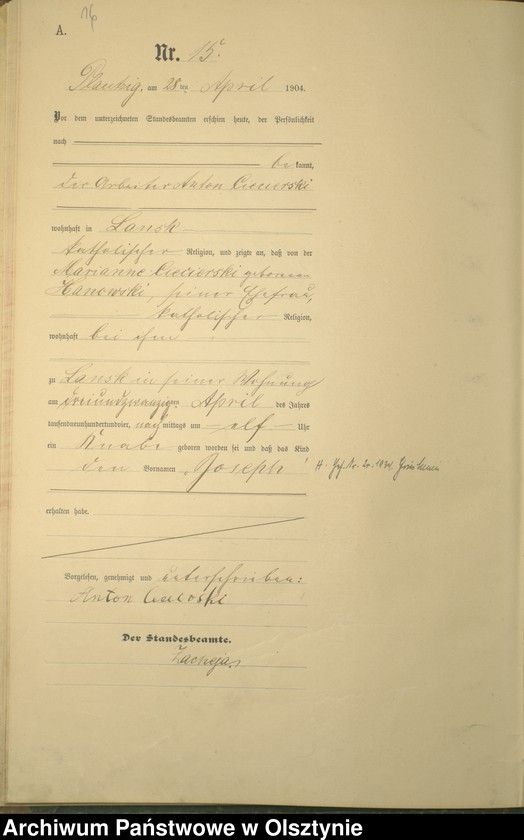 16
A.
Nr. 15.
Plautzig, am 28ten April 1904.
Vor dem unterzeichneten Standesbeamten erschien heute, der Persönlichkeit
nach
be kannt,
der Arbeiter Anton Ciecierski
wohnhaft in Lansk
katholischer Religion, und zeigte an, daß von der
Marianne Ciecierski geborenen
Hanowski, seiner Ehefrau,
katholischer Religion,
wohnhaft bei ihm
zu Lansk in seiner Wohnung
am dreiundzwanzigten April des Jahres
tausendneunhundertundvier, nachmittags um elf Uhr
ein Knabe geboren worden sei und daß das Kind
den Vornamen Joseph
H.
erhalten habe.
Vorgelesen, genehmigt und unterschrieben:
Anton
Der Standesbeamte.
Archiwum Państwowe w Olsztynie